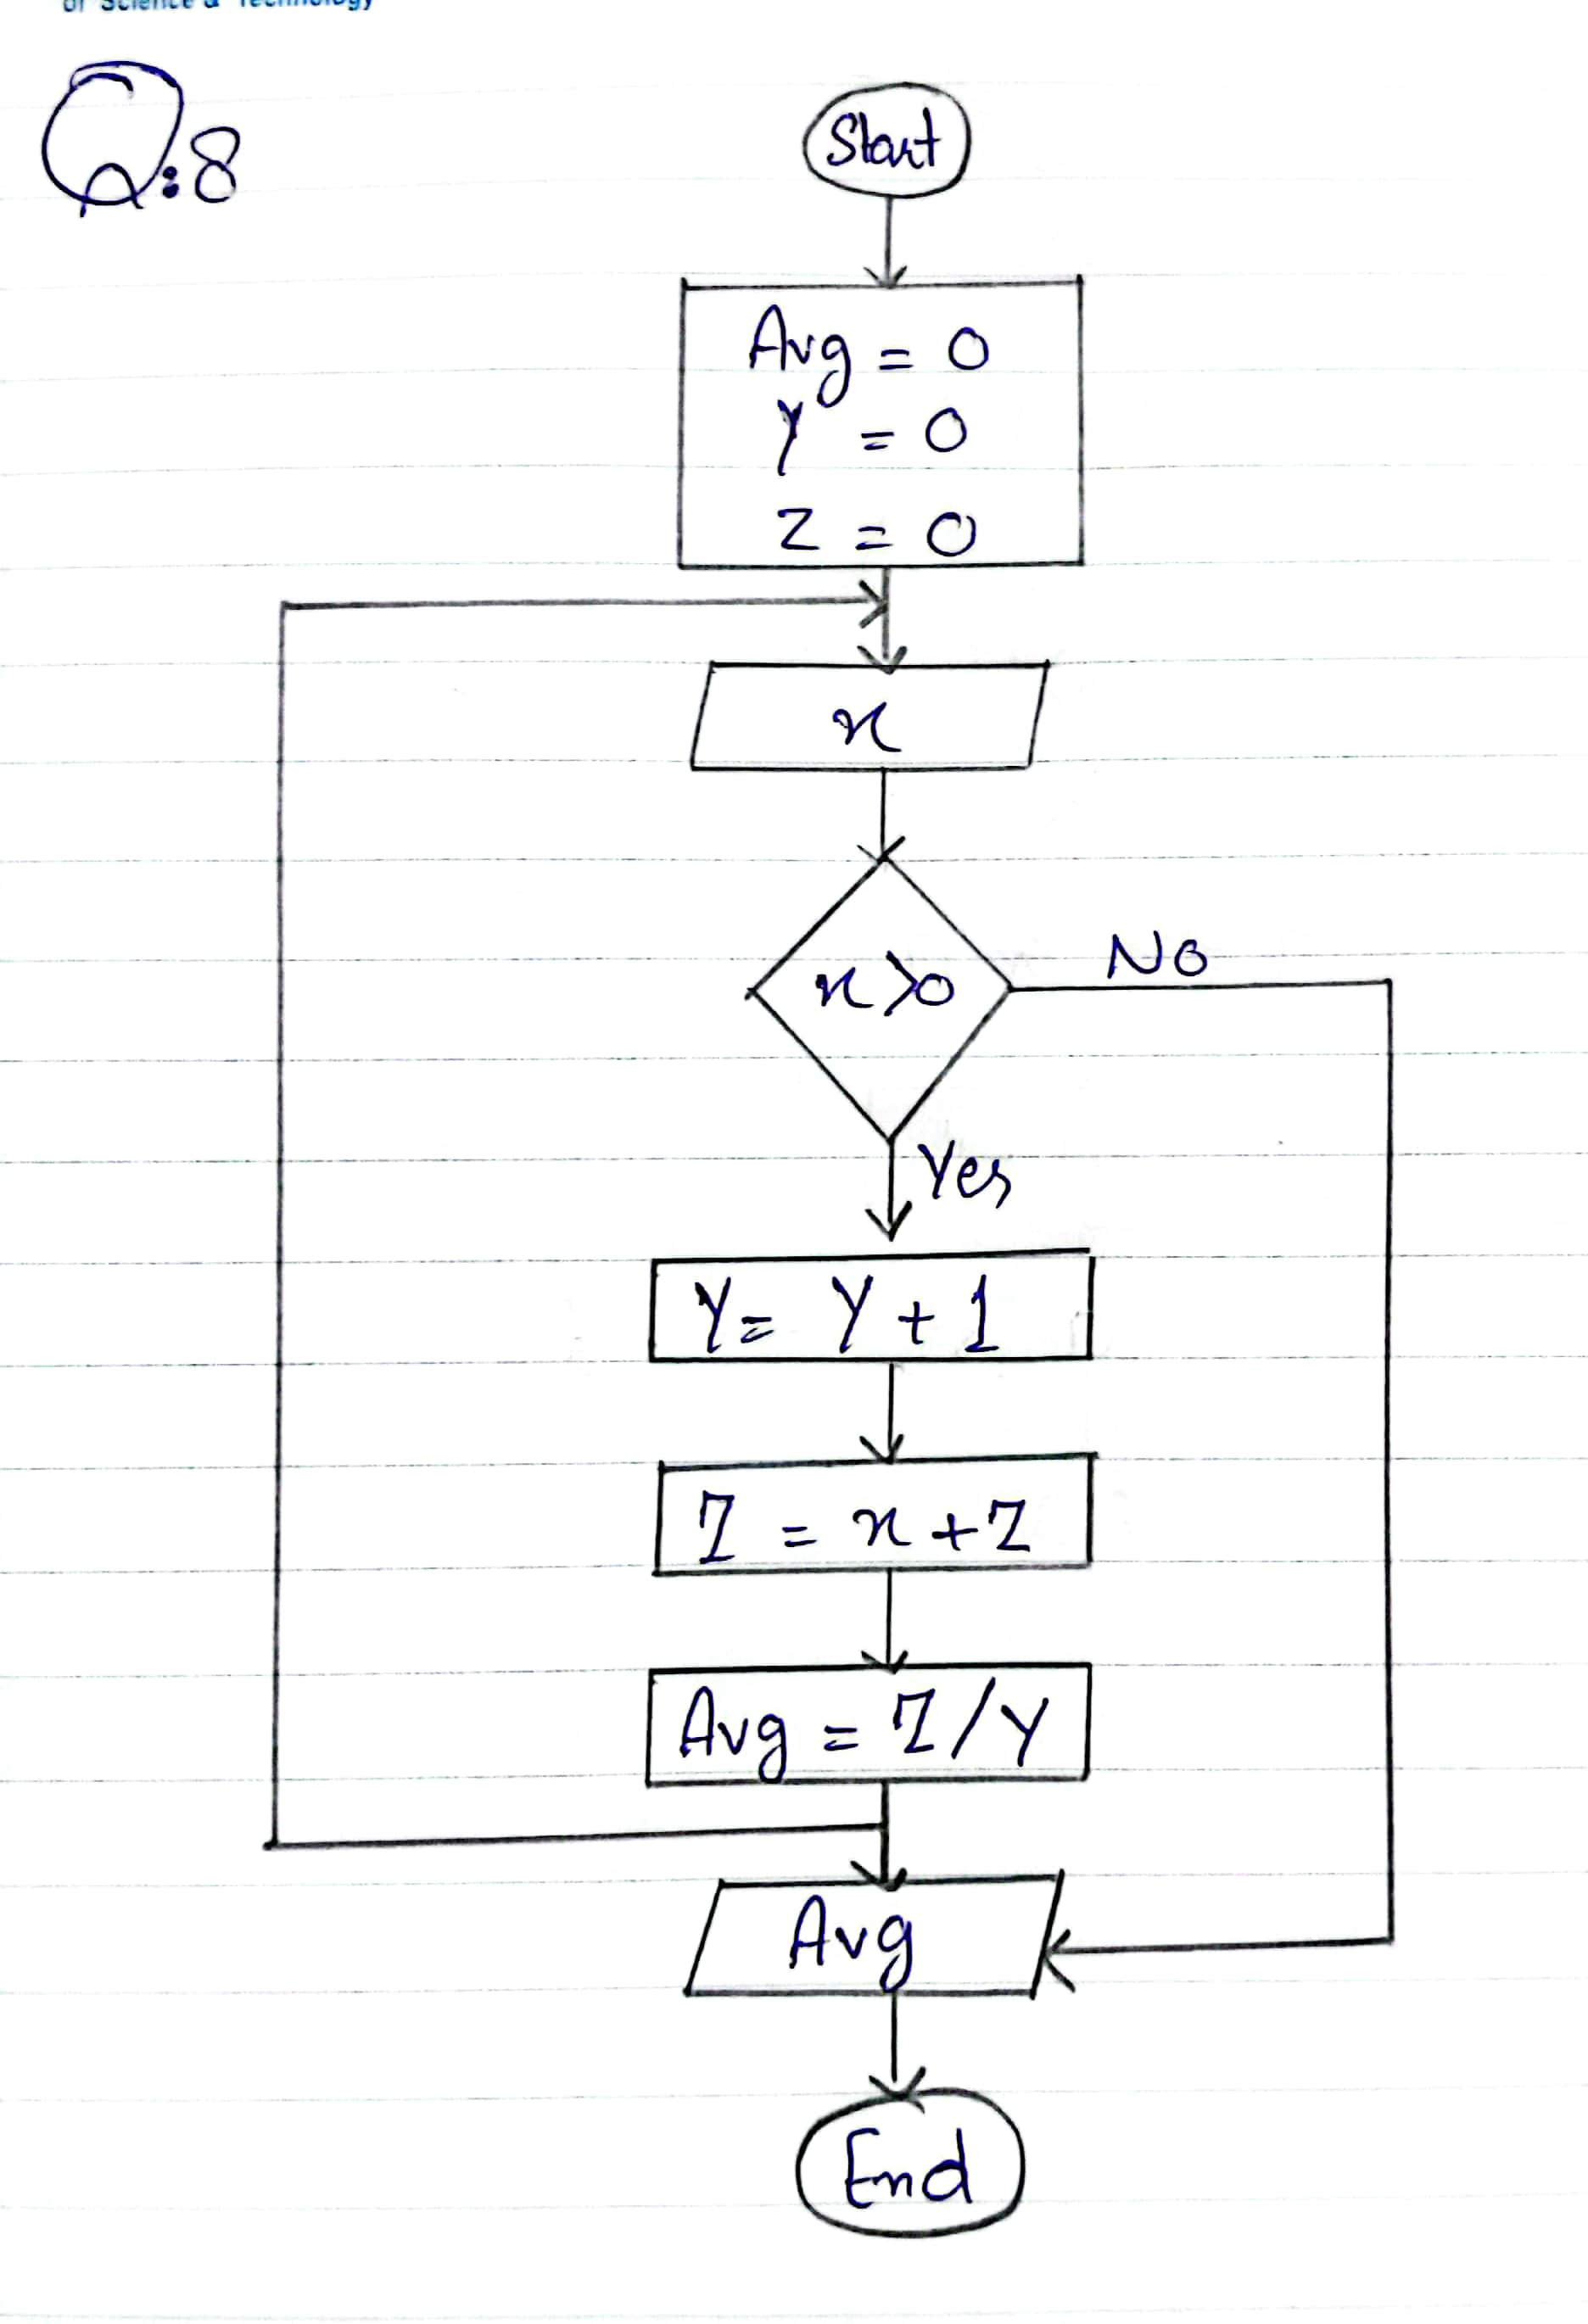 of Science & Technology
Q:8
Start
Avg = 0
Y = 0
Z = 0
x
x>0
No
Yes
Y = Y + 1
Z = x + Z
Avg = Z/Y
Avg
End